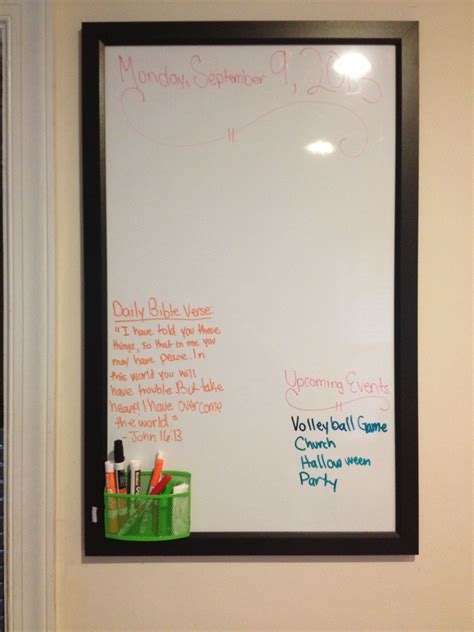 Monday, September 9, 2013
Daily Bible Verse:
"I have told you these
things, so that in me you
may have peace. In
this world you will
have trouble But take
heart! I have overcome
the world."
- John 16:13
Upcoming Events
Volleyball Game
Church
Halloween
Party